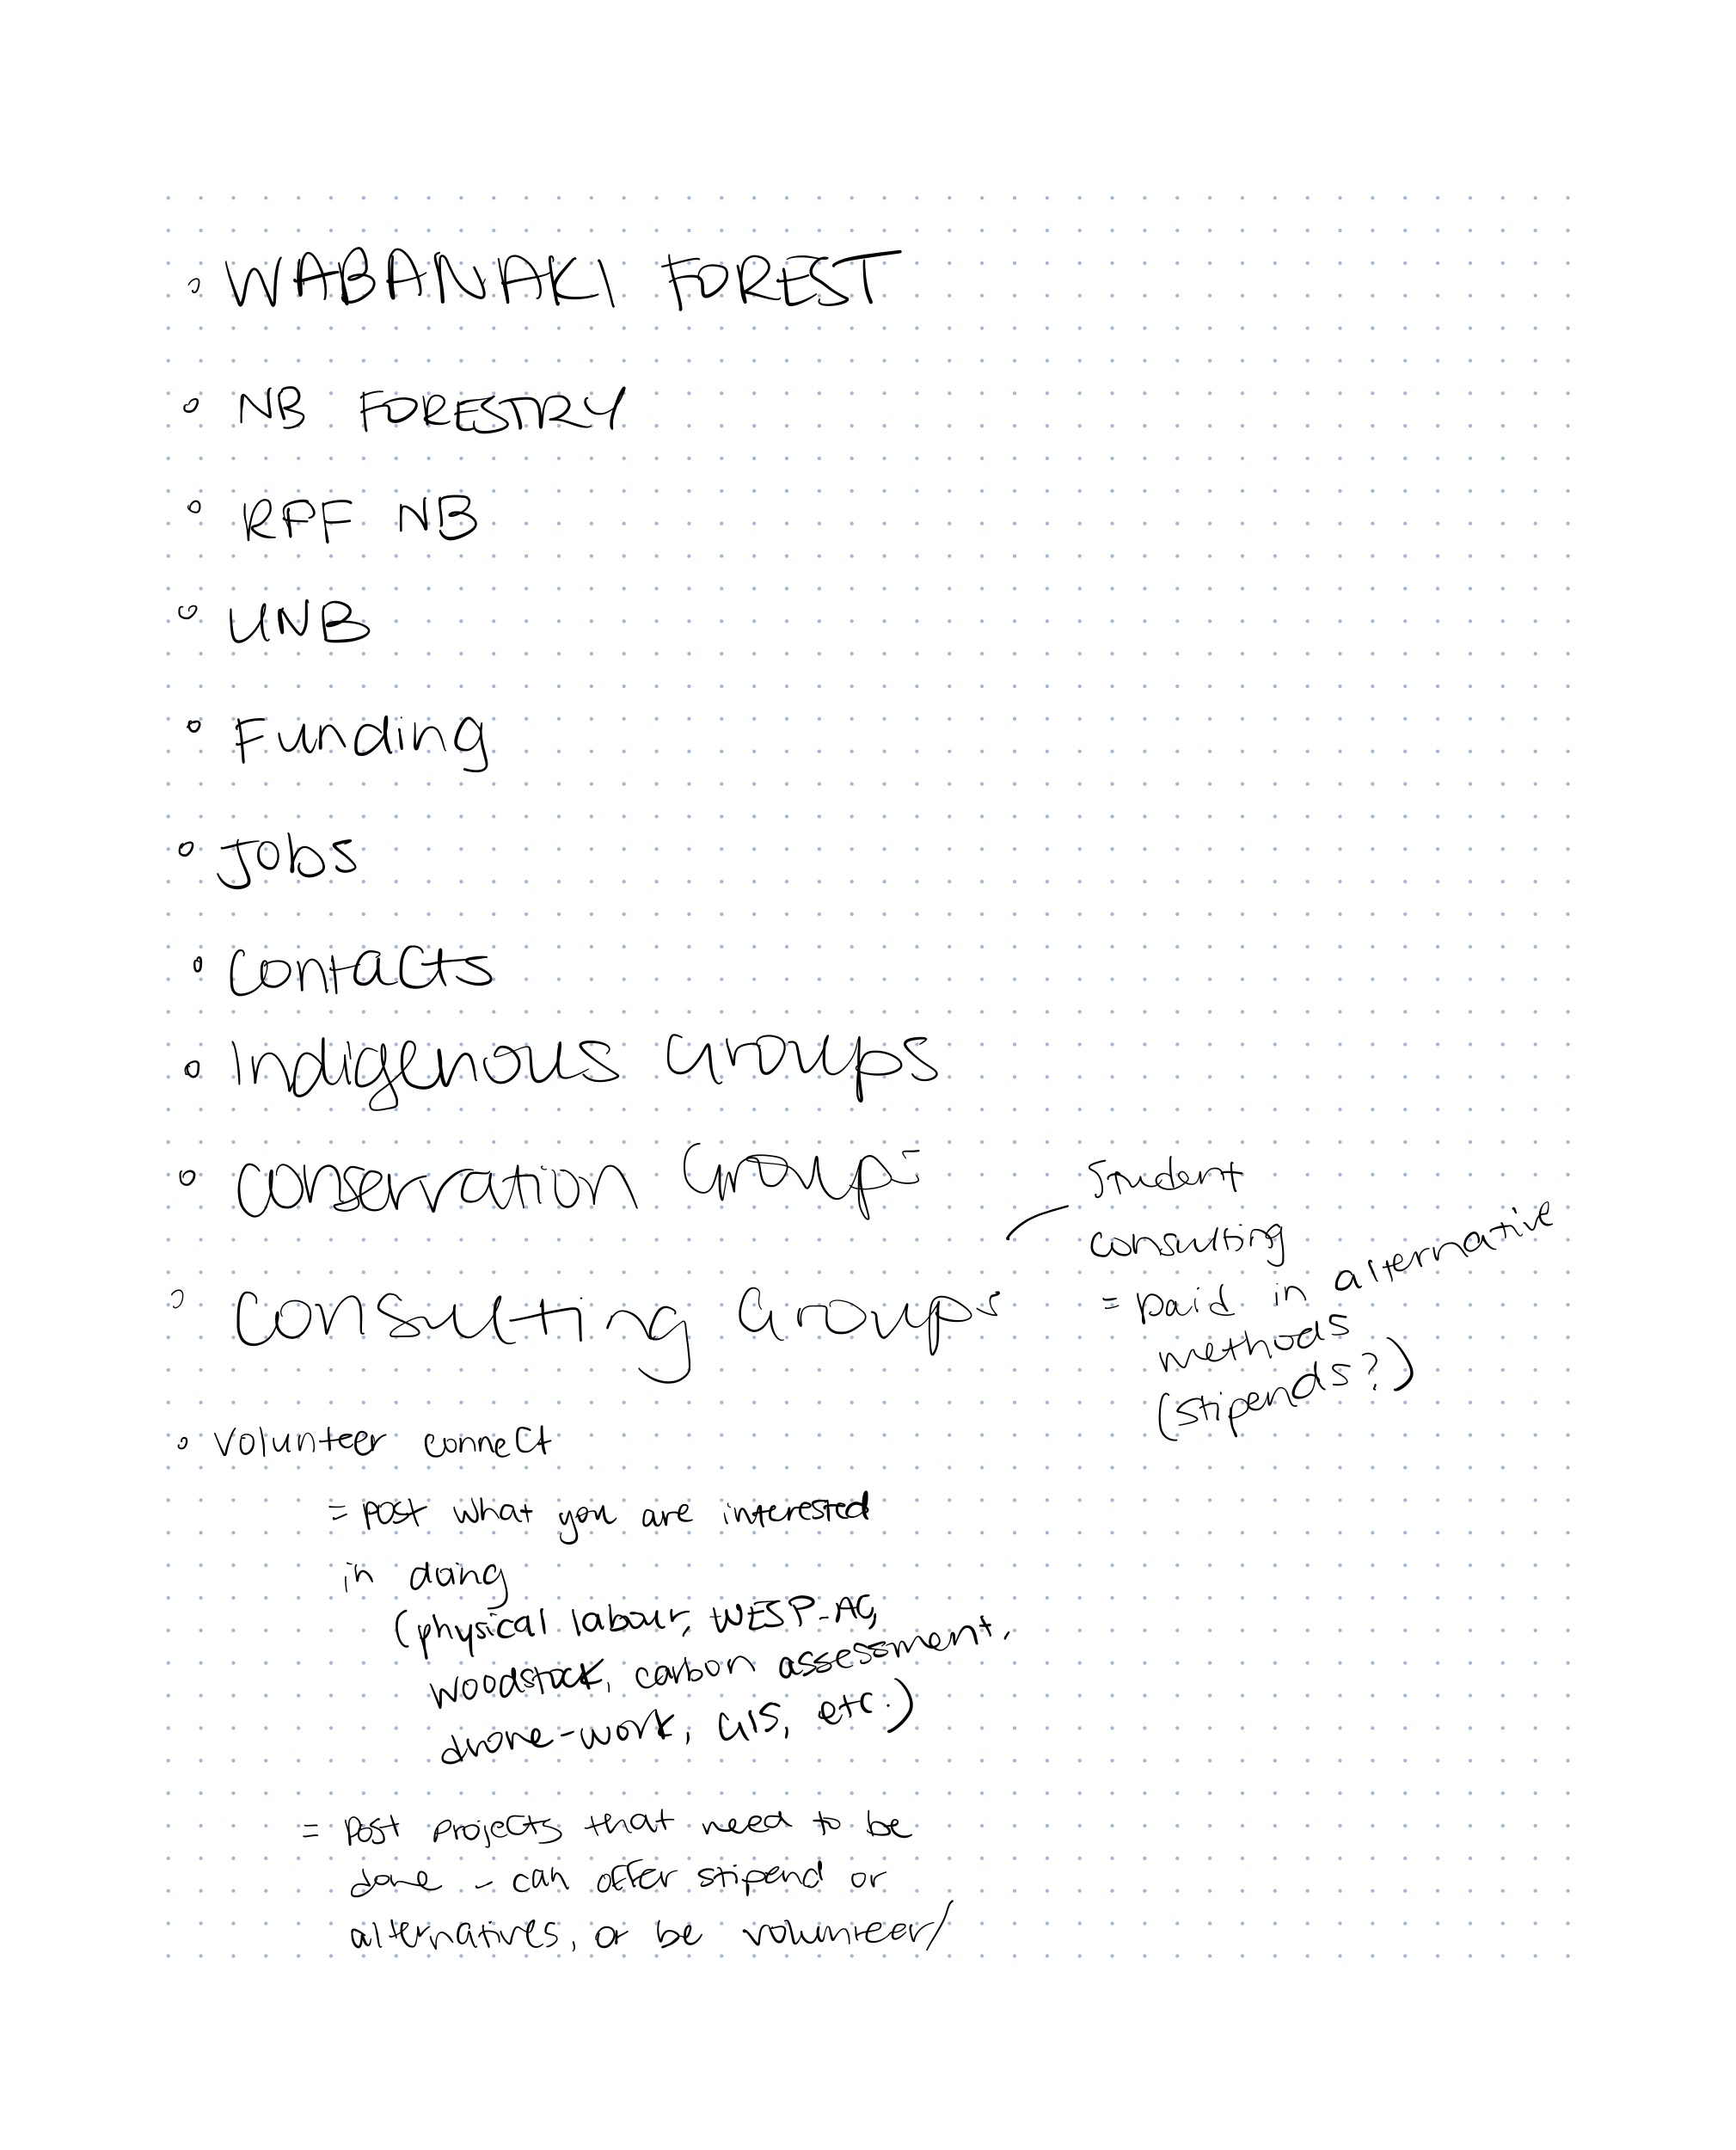 WABANAKI FOREST
NB FORESTRY
RPF NB
UNB
Funding
Jobs
Contacts
Indigenous Groups
Conservation Groups
Consulting Groups
Student
consulting
= paid in alternative
methods
(stipends?)
Volunteer connect
= post what you are interested
in doing
(physical labour, WESP-AC,
woodstock, carbon assessment,
drone-work, GIS, etc.)
= Post projects that need to be
done - can offer stipend or
alternatives, or be volunteer/